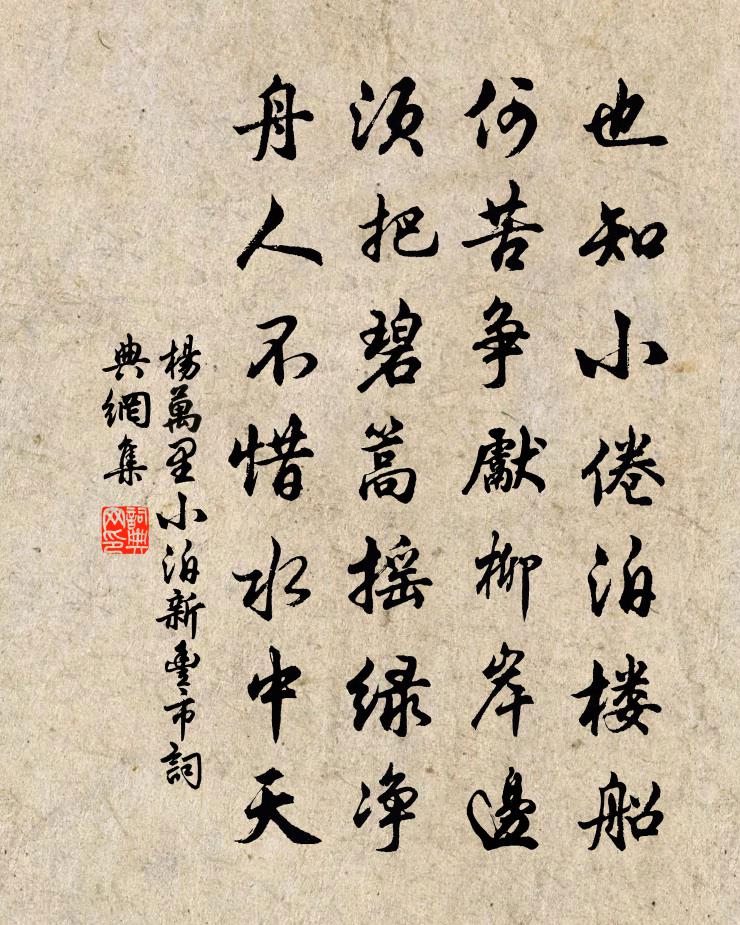 也知小倦泊楼船
何苦争獻柳岸邊
须把碧篙摇绿净
舟人不惜水中天
楊萬里小泊新豐市詞
典網集
詞典网印